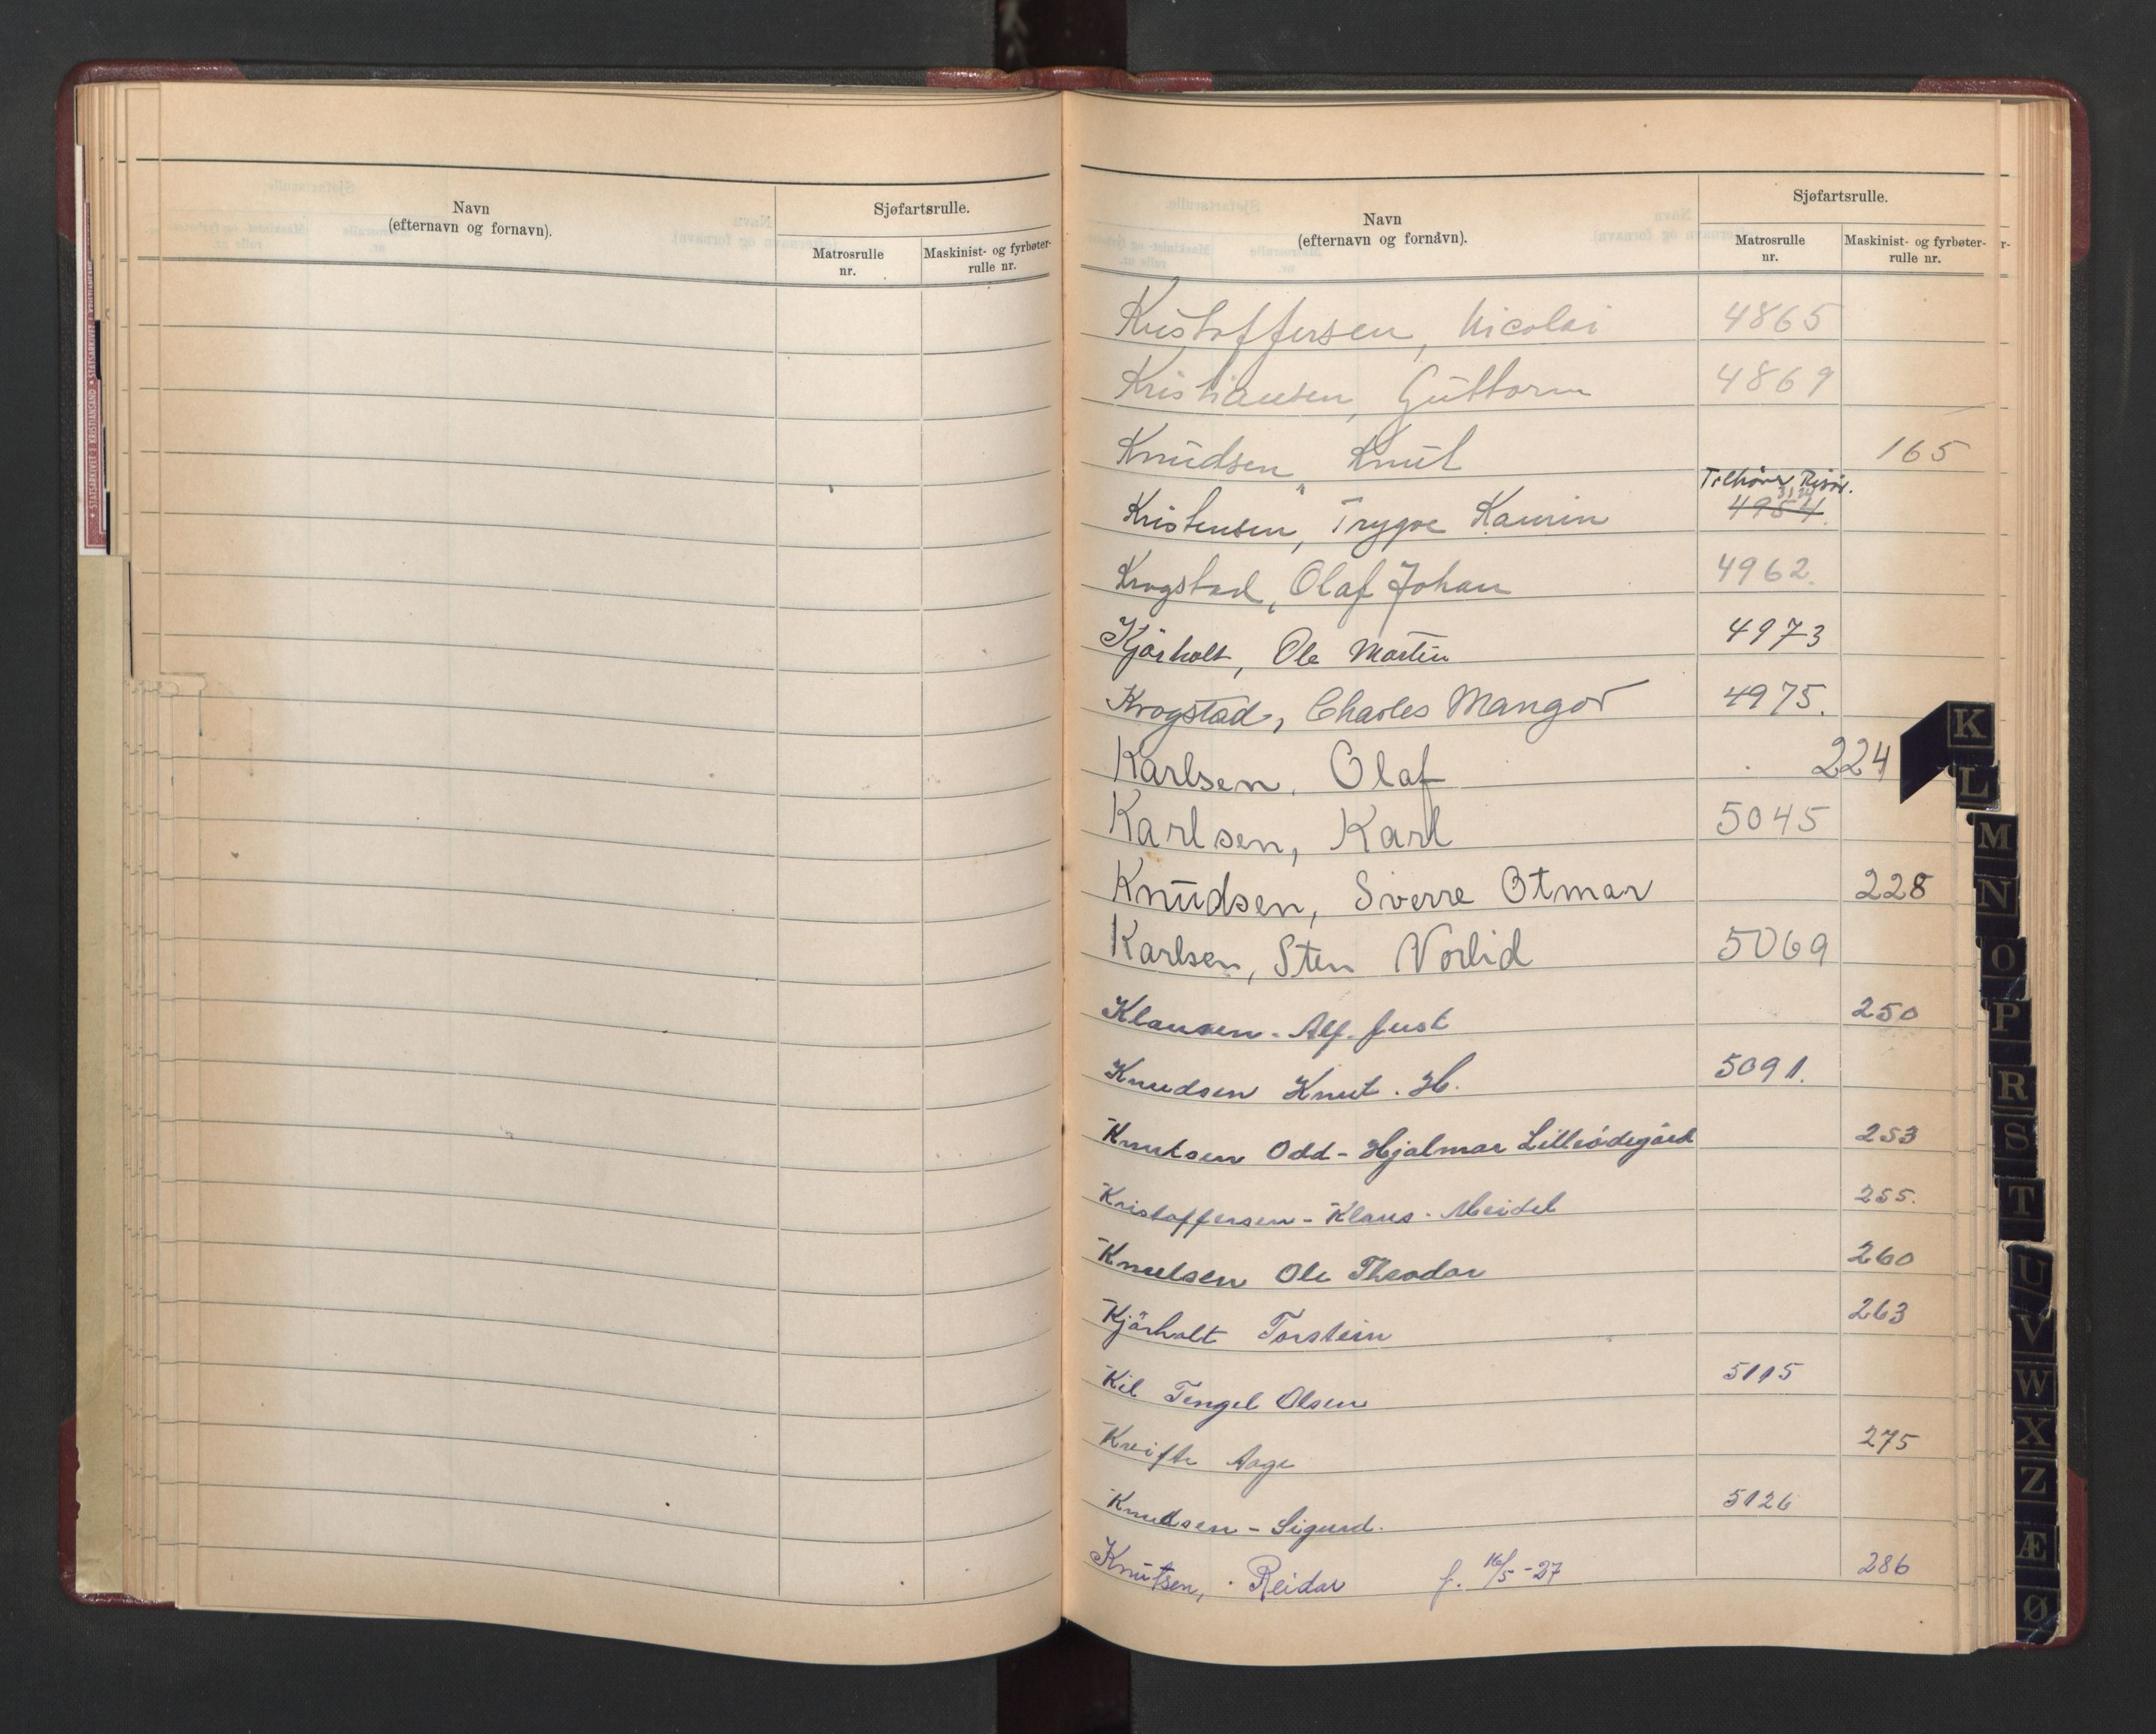 Navn
(efternavn og fornavn).
Sjøfartsrulle.
Matrosrulle
nr.
Maskinist- og fyrbøter-
rulle nr.
Navn
(efternavn og fornavn).
Sjøfartsrulle.
Matrosrulle
nr.
Maskinist- og fyrbøter-
rulle nr.
Kristoffersen, Nicolai 4865
Kristiansen, Guttorm 4869
Knudsen, Knut 165
Tilhører Risør.
Kristensen, Trygve Kaurin 4954.
Krogstad, Olaf Johan 4962.
Kjörholt, Ole Martin 4973
Krogstad, Charles Mangor 4975.
Karlsen, Olaf 224
Karlsen, Karl 5045
Knudsen, Sverre Otmar 228
Karlsen, Sten Vorlid 5069
Klausen - Alf. Just 250
Knudsen Knut. H. 5091.
Knutsen Odd - Hjalmar Lilleödegård 253
Kristoffersen - Klaus - Meidel 255.
Knutsen Ole Theodor 260
Kjörholt Torstein 263
Kil Tengel Olsen 5115
Kreifte Aage 275
Knudsen - Sigurd. 5126
Knutsen, Reidar f. 16/5-27 286
K
L
M
N
O
P
R
S
T
U
V
W
X
Z
Æ
Ø
STATSARKIVET I KRISTIANSAND